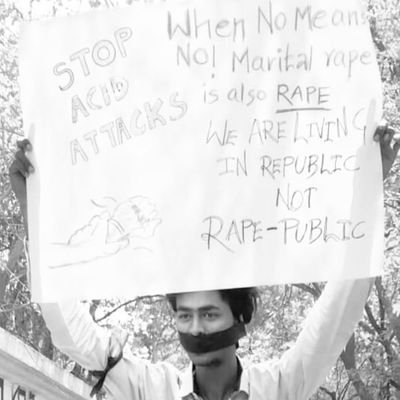 STOP
ACID
ATTACKS
When No Means
No! Marital rape
is also RAPE
WE ARE LIVING
IN REPUBLIC
NOT
RAPE-PUBLIC